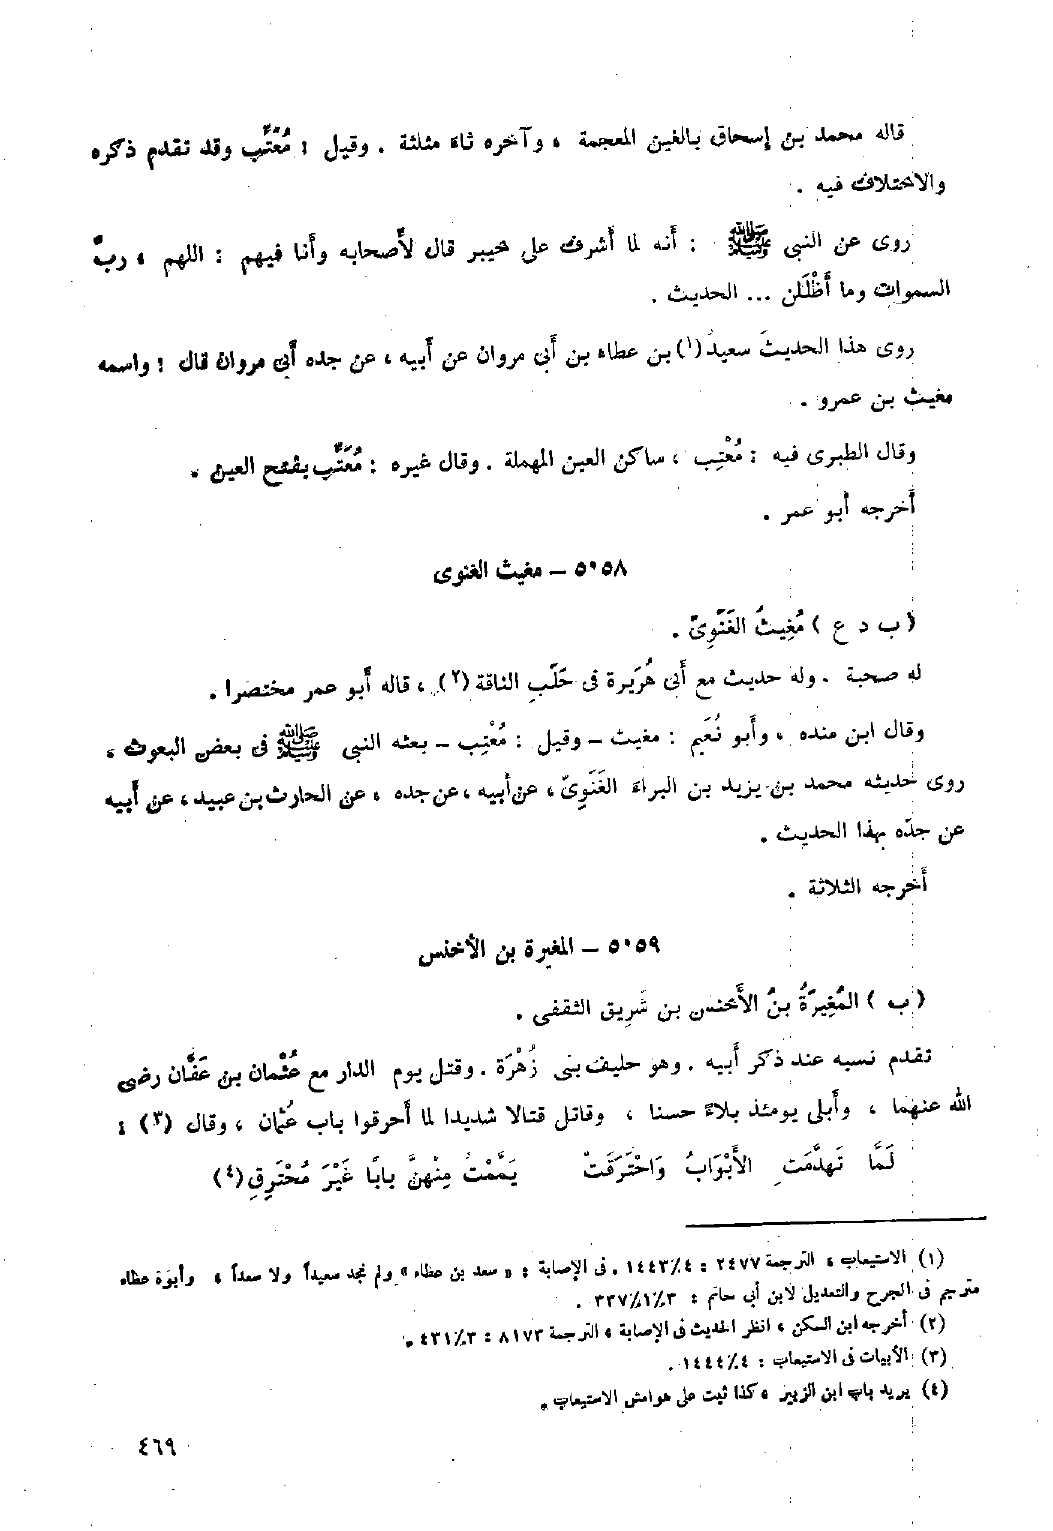 قاله محمد بن إسحاق بالغين المعجمة ، وآخره ثاء مثلثة . وقيل : مُعَتِّب وقد تقدم ذكره
والاختلاف فيه .
روى عن النبي ﷺ : أنه لما أشرف على خيبر قال لأصحابه وأنا فيهم : اللهم ، ربَّ
السموات وما أَظْلَلن ... الحديث .
روى هذا الحديثَ سعيدُ (١) بن عطاء بن أبى مروان عن أبيه ، عن جده أبى مروان قال : واسمه
مغيث بن عمرو .
وقال الطبرى فيه : مُعْتِب ، ساكن العين المهملة . وقال غيره : مُعَتِّب بفتح العين .
أخرجه أبو عمر .
٥٠٥٨ – مغيث الغنوى
( ب د ع ) مُغِيثُ الغَنَوِىّ .
له صحبة . وله حديث مع أبى هُرَيرة فى حَلَب الناقة (٢) ، قاله أبو عمر مختصرا .
وقال ابن منده ، وأبو نُعَيم : مغيث – وقيل : مُعْتِب – بعثه النبى ﷺ فى بعض البعوث ،
روى حديثه محمد بن يزيد بن البراء الغَنَوِىّ ، عن أبيه ، عن جده ، عن الحارث بن عبيد ، عن أبيه
عن جدّه بهذا الحديث .
أخرجه الثلاثة .
٥٠٥٩ – المغيرة بن الأخنس
( ب ) المُغِيرَةُ بنُ الأَخنس بن شَرِيق الثقفى .
تقدم نسبه عند ذكر أبيه . وهو حليف بنى زُهْرَة . وقتل يوم الدار مع عُثْمان بن عَفَّان رضى
الله عنهما ، وأبلى يومئذ بلاءً حسنا ، وقاتل قتالا شديدا لما أحرقوا باب عُثمان ، وقال (٣) :
لَمَّا تَهَدَّمَتِ الأَبْوَابُ وَاحْتَرَقَتْ يَمَّمْتُ مِنْهنَّ بابًا غَيْرَ مُحْتَرِقِ (٤)
(١) الاستيعاب ، الترجمة ٢٤٧٧ : ٤/١٤٤٣ . فى الإصابة : « سعد بن عطاء » ولم نجد سعيداً ولا سعداً ، وأبوه عطاء
مترجم فى الجرح والتعديل لابن أبي حاتم : ٣/١/٣٣٧ .
(٢) أخرجه ابن السكن ، انظر الحديث فى الإصابة ، الترجمة ٨١٧٣ : ٣/٤٣١ .
(٣) الأبيات فى الاستيعاب : ٤/١٤٤٤ .
(٤) يريد باب ابن الزبير ، كذا ثبت على هوامش الاستيعاب .
٤٦٩